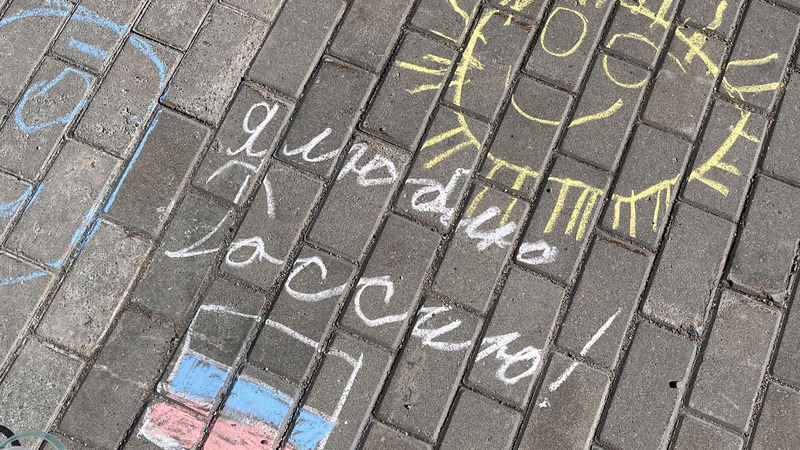 Я люблю
Россию!